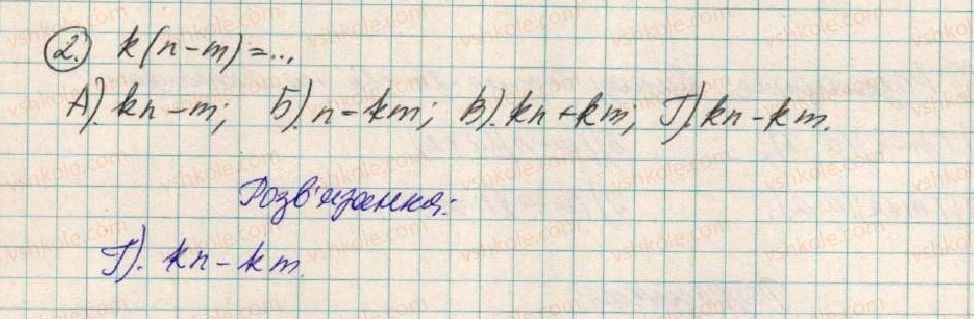 2. k(n-m)=...
А). kn-m; Б). n-km; В). kn+km; Г). kn-km.
Розв'язання:
Г). kn-km.